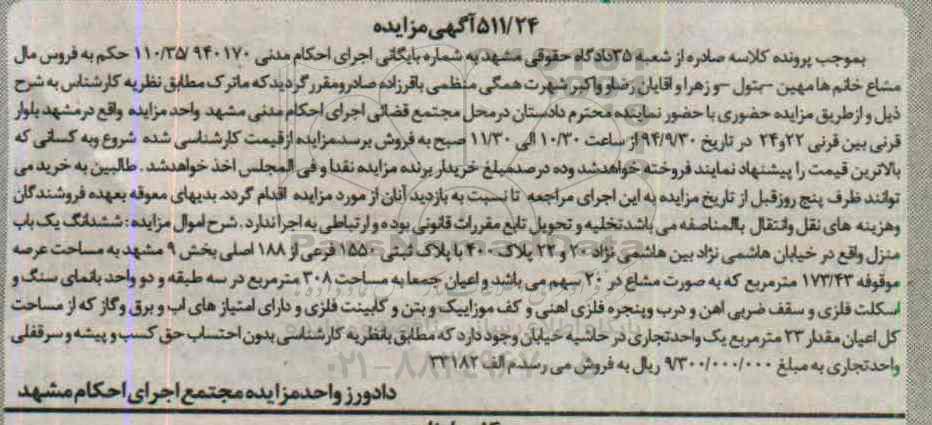 ۵۱۱/۲۴ آگهی مزایده
بموجب پرونده کلاسه صادره از شعبه ۳۵دادگاه حقوقی مشهد به شماره بایگانی اجرای احکام مدنی ۹۴۰۱۷۰ /۱۱۰/۳۵ حکم به فروس مال
مشاع خانم ها مهین -بتول -و زهرا و اقایان رضاو واکبر شهرت همگی منظمی باقرزاده صادر ومقرر گردید که ماترک مطابق نظریه کارشناس به شرح
ذیل و از طریق مزایده حضوری با حضور نماینده محترم دادستان در محل مجتمع قضائی اجرای احکام مدنی مشهد واحد مزایده واقع در مشهد بلوار
قرنی بین قرنی ۲۲و۲۴ در تاریخ ۹۴/۹/۳۰ از ساعت ۱۰/۳۰ الی ۱۱/۳۰ صبح به فروش برسد مزایده از قیمت کارشناسی شده شروع وبه کسانی که
بالاترین قیمت را پیشنهاد نمایند فروخته خواهدشد وده درصدمبلغ خریدار برنده مزایده نقدا و فی المجلس اخذ خواهدشد . طالبین به خرید می
توانند ظرف پنج روزقبل از تاریخ مزایده به این اجرای مراجعه تا نسبت به بازدید آنان از مورد مزایده اقدام گردد بدیهای معوقه بعهده فروشندگان
وهزینه های نقل وانتقال بالمناصفه می باشد تخلیه و تحویل تابع مقررات قانونی بوده و ارتباطی به اجرا ندارد . شرح اموال مزایده : ششدانگ یک باب
منزل واقع در خیابان هاشمی نژاد بین هاشمی نژاد ۲۰ و ۲۲ پلاک ۴۰۰ با پلاک ثبتی ۱۵۵۰ فرعی از ۱۸۸ اصلی بخش ۹ مشهد به مساحت عرصه
موقوفه ۱۷۳/۴۳ مترمربع که به صورت مشاع در ۲۰ سهم می باشد و اعیان جمعا به مساحت ۳۰۸ مترمربع در سه طبقه و دو واحد بانمای سنگ و
اسکلت فلزی و سقف ضربی اهن و درب وپنجره فلزی اهنی و کف موزاییک و بتن و کابینت فلزی و دارای امتیاز های اب و برق وگاز که از مساحت
کل اعیان مقدار ۲۳ مترمربع یک واحدتجاری در حاشیه خیابان وجود دارد که مطابق بانظریه کارشناسی بدون احتساب حق کسب و پیشه و سرقفلی
واحدتجاری به مبلغ ۹/۳۰۰/۰۰۰/۰۰۰ ریال به فروش می رسد.م الف ۳۳۱۸۲
دادورز واحد مزایده مجتمع اجرای احکام مشهد